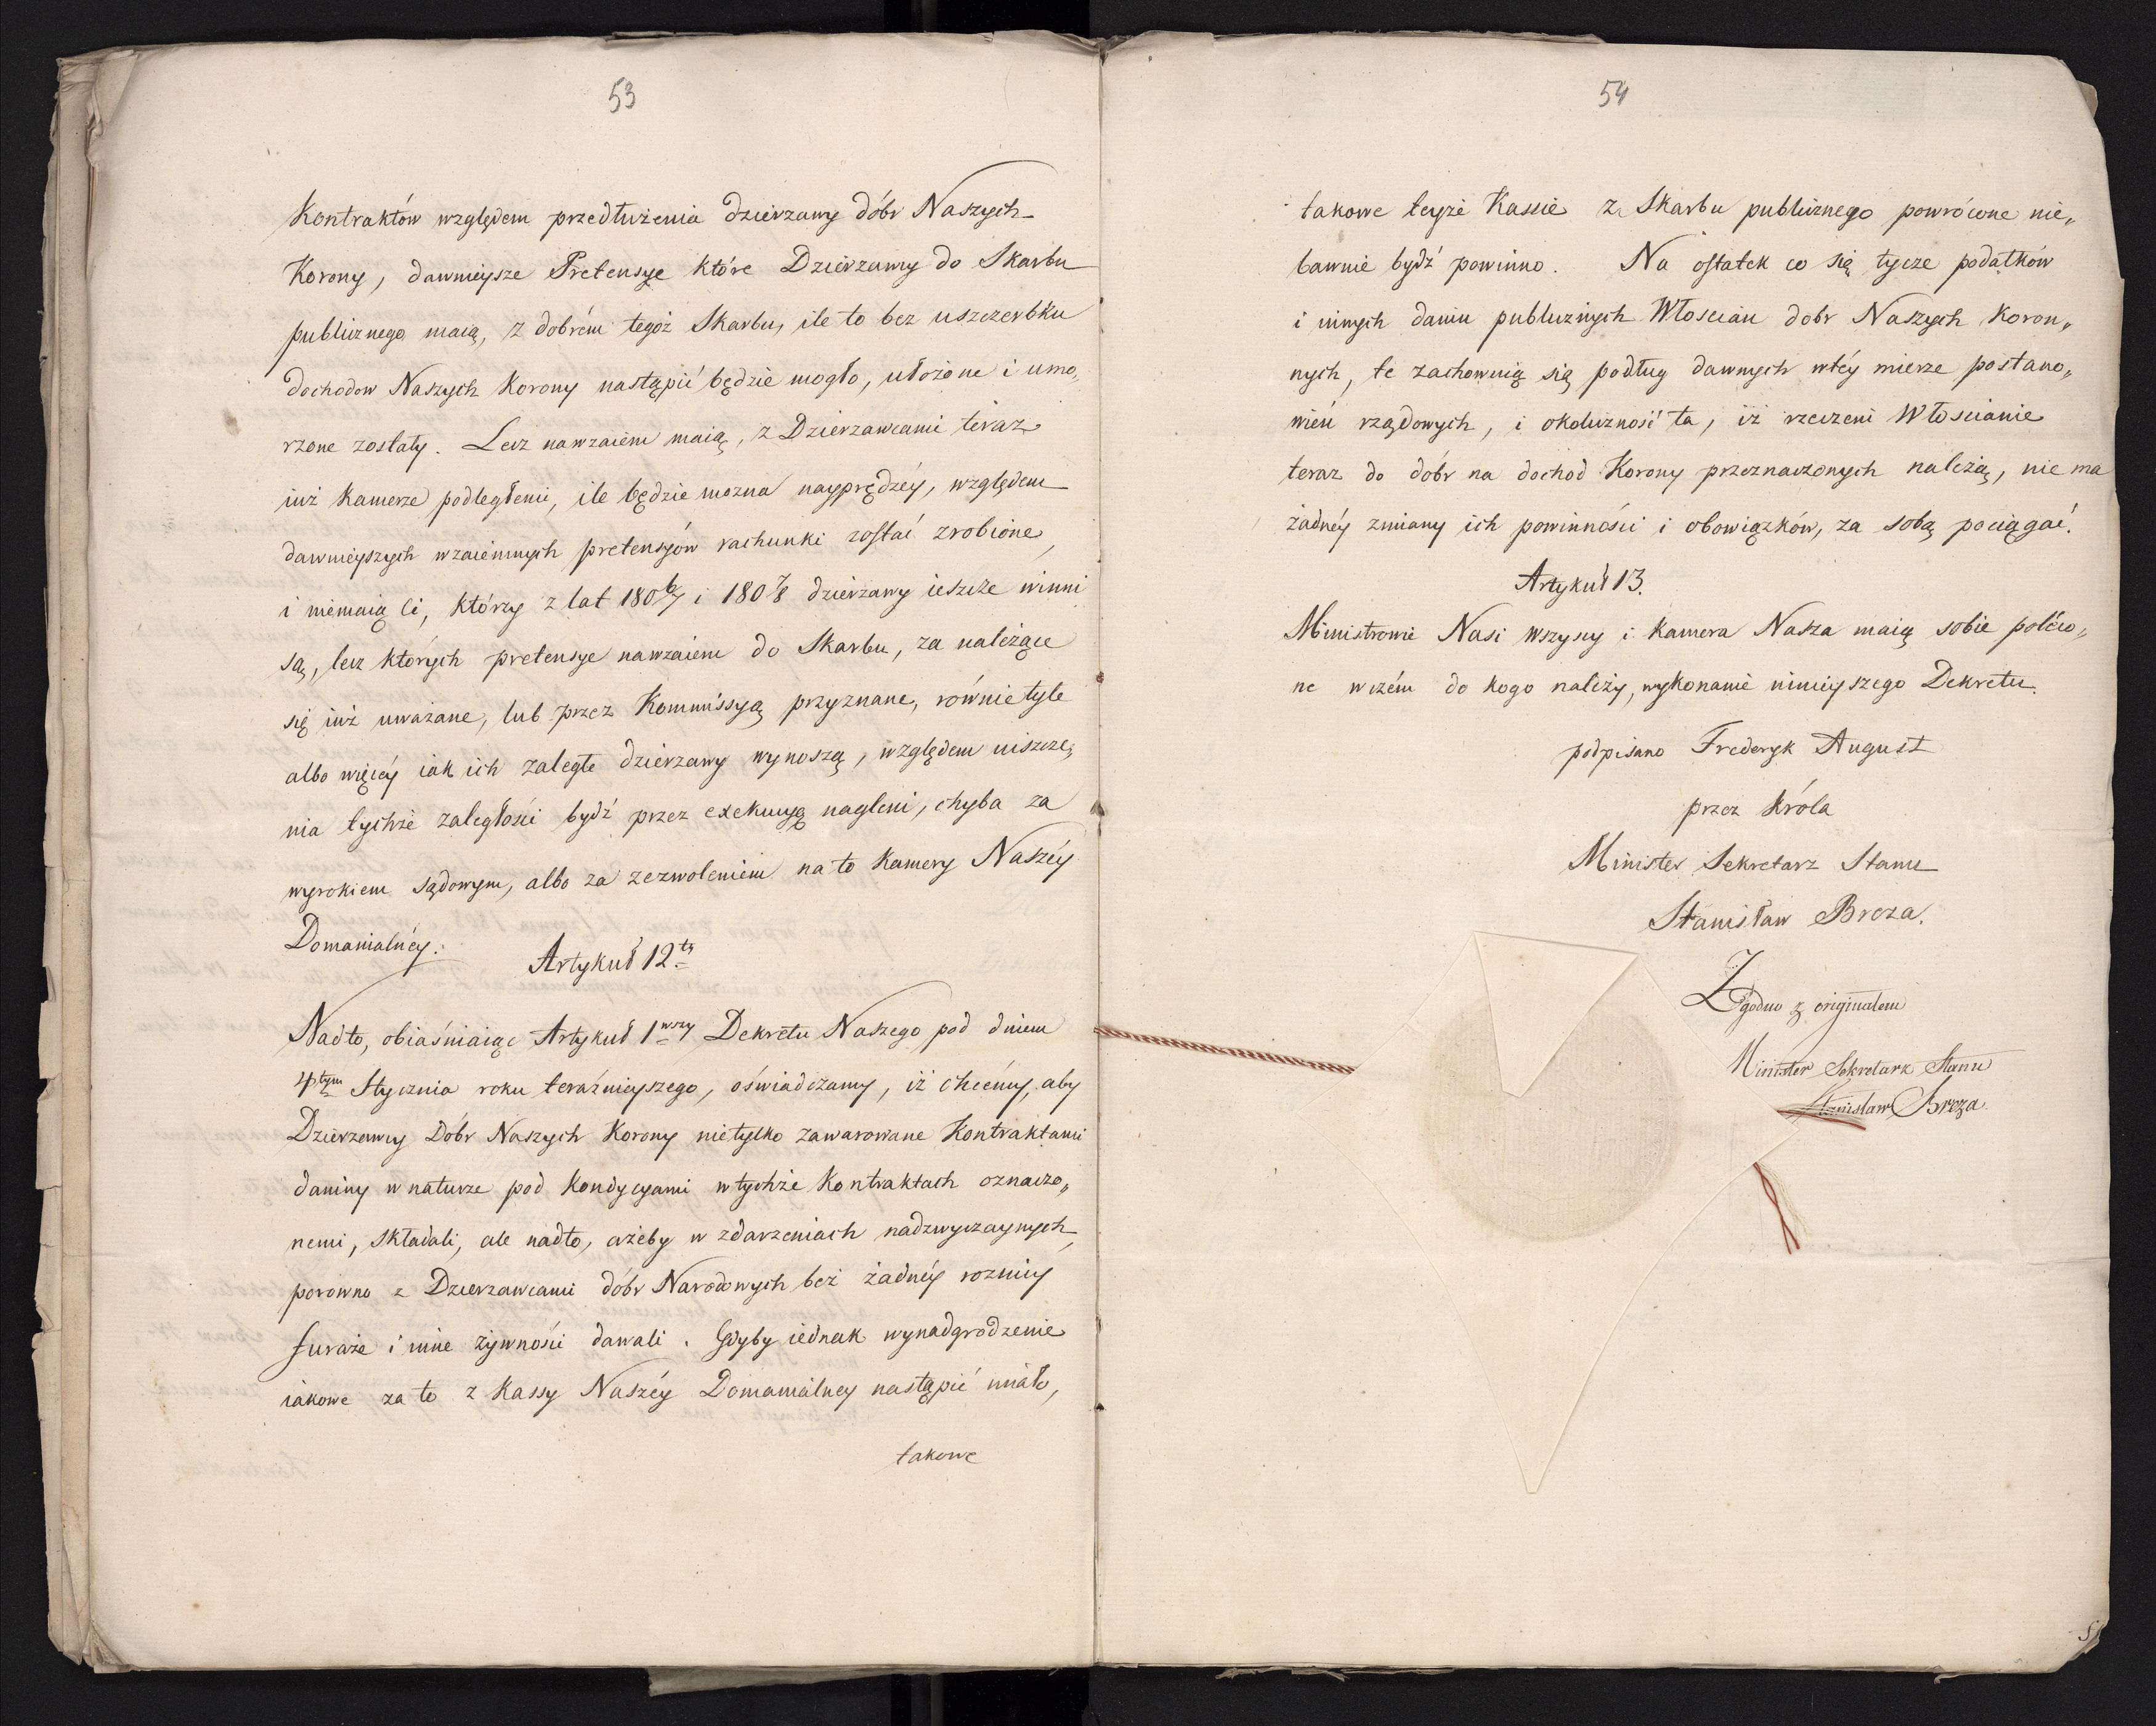 53
Kontraktów względem przedłużenia dzierzawy dóbr Naszych
Korony, dawnieysze Pretensye które Dzierzawcy do Skarbu
publicznego maią, z dobrém tegoż Skarbu, ile to bez uszczerbku
dochodow Naszych Korony nastąpić będzie mogło, ułożone i umo„
rzone zostały. Lecz nawzaiem maią, z Dzierzawcami teraz
iuż Kamerze podległemi, ile będzie mozna nayprędzéy, względem
dawnieyszych wzaiemnych pretensyów rachunki zostać zrobione,
i niemaią Ci, którzy z lat 180 6/7 i 180 7/8 dzierzawy ieszcze winni
są, lecz których pretensye nawzaiem do Skarbu, za należące
się iuż uważane, lub przez Kommissyą przyznane, równie tyle
albo więcéy iak ich zaległe dzierzawy wynoszą, względem uiszcze„
nia tychże zaległości bydź przez exekucyą nagleni, chyba za
wyrokiem sądowym, albo za zezwoleniem na to Kamery Naszéy
Domanialnéy.
Artykuł 12ty
Nadto, obiaśniaiąc Artykuł 1wszy Dekretu Naszego pod dniem
4tym Stycznia roku teraźnieyszego, oświadczamy, iż chcemy, aby
Dzierzawcy Dóbr Naszych Korony nietylko zawarowane Kontraktami
daniny w naturze pod kondycyami w tychże Kontraktach oznaczo„
nemi, składali, ale nadto, ażeby w zdarzeniach nadzwyczaynych,
porowno z Dzierzawcami dóbr Narodowych bez żadnéy roznicy
furaże i inne żywności dawali. Gdyby iednak wynadgrodzenie
iakowe za to z Kassy Naszéy Domanialney nastąpić miało,
takowe
54
takowe teyże Kassie z Skarbu publicznego powrócone nie„
bawnie bydź powinno. Na ostatek co się tycze podatków
i innych danin publicznych Włoscian dobr Naszych Koron„
nych, te zachowuią się podług dawnych wtéy mierze postano„
wień rządowych, i okoliczność ta, iż rzeczeni Włoscianie
teraz do dóbr na dochod Korony przeznaczonych należą, nie ma
żadnéy zmiany ich powinności i obowiązków, za sobą pociągać.
Artykuł 13.
Ministrowie Nasi wszyscy i Kamera Nasza maią sobie poléco„
ne w czém do kogo należy, wykonanie ninieyszego Dekretu.
podpisano Frederyk August
przez Króla
Minister Sekretarz Stanu
Stanisław Breza.
Zgodno z originałem
Minister Sekretarz Stanu
Stanisław Breza.